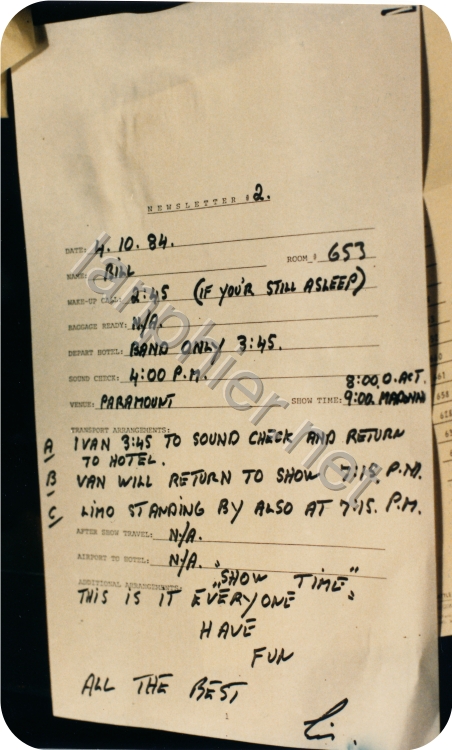 NEWSLETTER #2.
DATE: 4.10.84.
NAME: BILL ROOM # 653
WAKE-UP CALL: 2:45 (IF YOU'R STILL ASLEEP)
BAGGAGE READY: N/A.
DEPART HOTEL: BAND ONLY 3:45.
SOUND CHECK: 4:00 P.M.
8:00, O. ACT.
VENUE: PARAMOUNT SHOW TIME: 9:00.
TRANSPORT ARRANGEMENTS:
A 1 VAN 3:45 TO SOUND CHECK AND RETURN
TO HOTEL.
B VAN WILL RETURN TO SHOW 7:15. P.M.
C LIMO STANDING BY ALSO AT 7:15. P.M.
AFTER SHOW TRAVEL: N/A.
AIRPORT TO HOTEL: N/A.
ADDITIONAL ARRANGEMENTS: "SHOW TIME"
THIS IS IT EVERYONE
HAVE
FUN
ALL THE BEST
1
lamphier.net